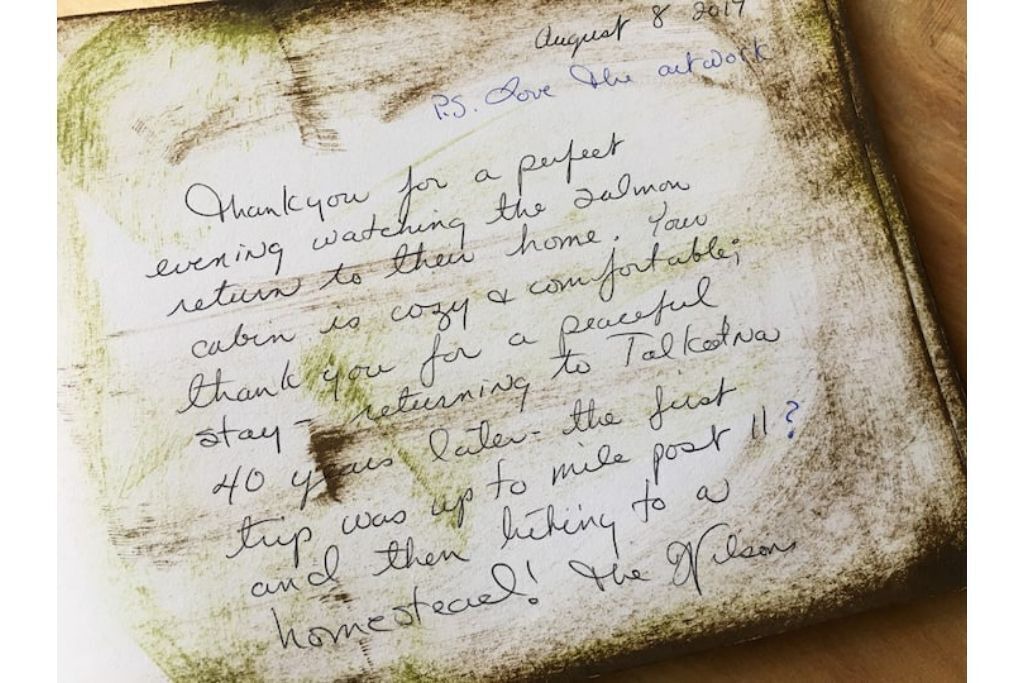 August 8 2017
P.S. Love the artwork
Thank you for a perfect
evening watching the salmon
return to their home. Your
cabin is cozy & comfortable;
thank you for a peaceful
stay - returning to Talkeetna
40 years later - the first
trip was up to mile post 11?
and then hiking to a
homestead! The Wilsons